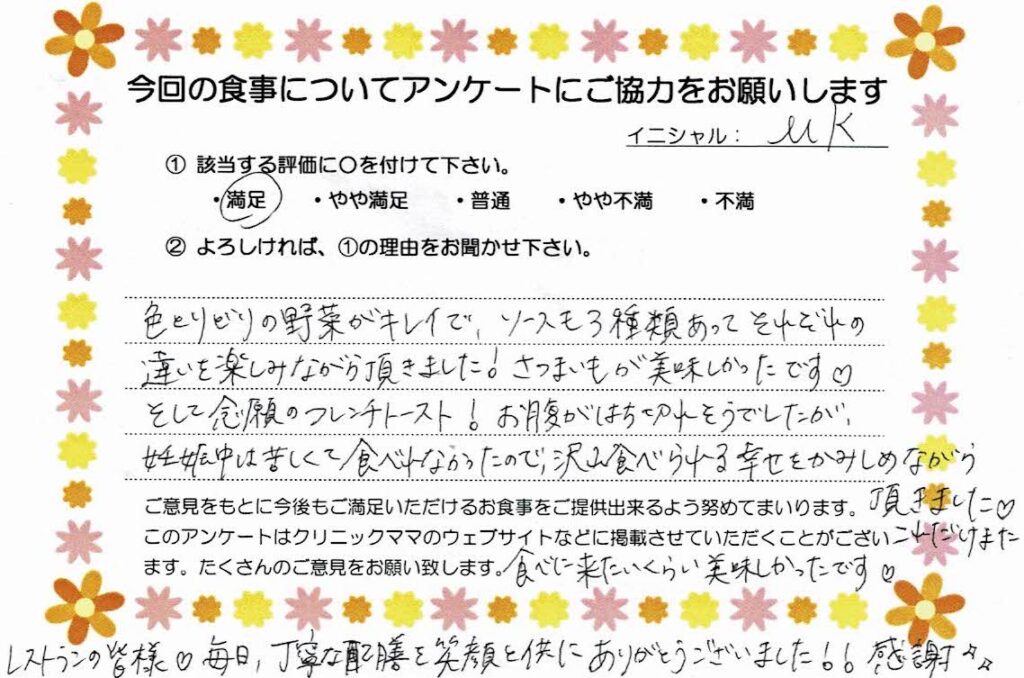 今回の食事についてアンケートにご協力をお願いします
イニシャル: MK
① 該当する評価に○を付けて下さい。
・満足 ・やや満足 ・普通 ・やや不満 ・不満
② よろしければ、①の理由をお聞かせ下さい。
色とりどりの野菜がキレイで、ソースも3種類あってそれぞれの
違いを楽しみながら頂きました!さつまいもが美味しかったです♡
そして念願のフレンチトースト!お腹がはち切れそうでしたが、
妊娠中は苦しくて食べれなかったので、沢山食べられる幸せをかみしめながら
頂きました♡
これだけまた
食べに来たいくらい美味しかったです♡
ご意見をもとに今後もご満足いただけるお食事をご提供出来るよう努めてまいります。
このアンケートはクリニックママのウェブサイトなどに掲載させていただくことがござい
ます。たくさんのご意見をお願い致します。
レストランの皆様♡毎日、丁寧な配膳を笑顔と供にありがとうございました!!感謝